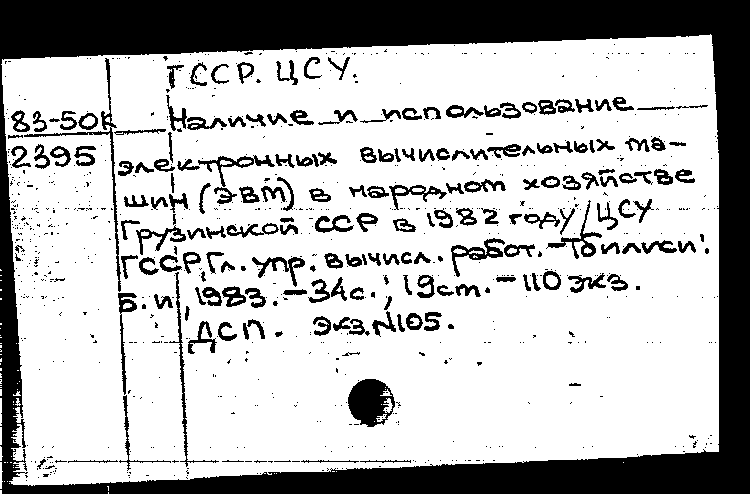 ГССР. ЦСУ.
83-50К Наличие и использование
2395 электронных вычислительных ма-
шин (ЭВМ) в народном хозяйстве
Грузинской ССР в 1982 году/ЦСУ
ГССР, Гл. упр. вычисл. работ. - Тбилиси:
Б.и., 1983. - 34с.; 19см. - 110 экз.
ДСП. Экз.N105.